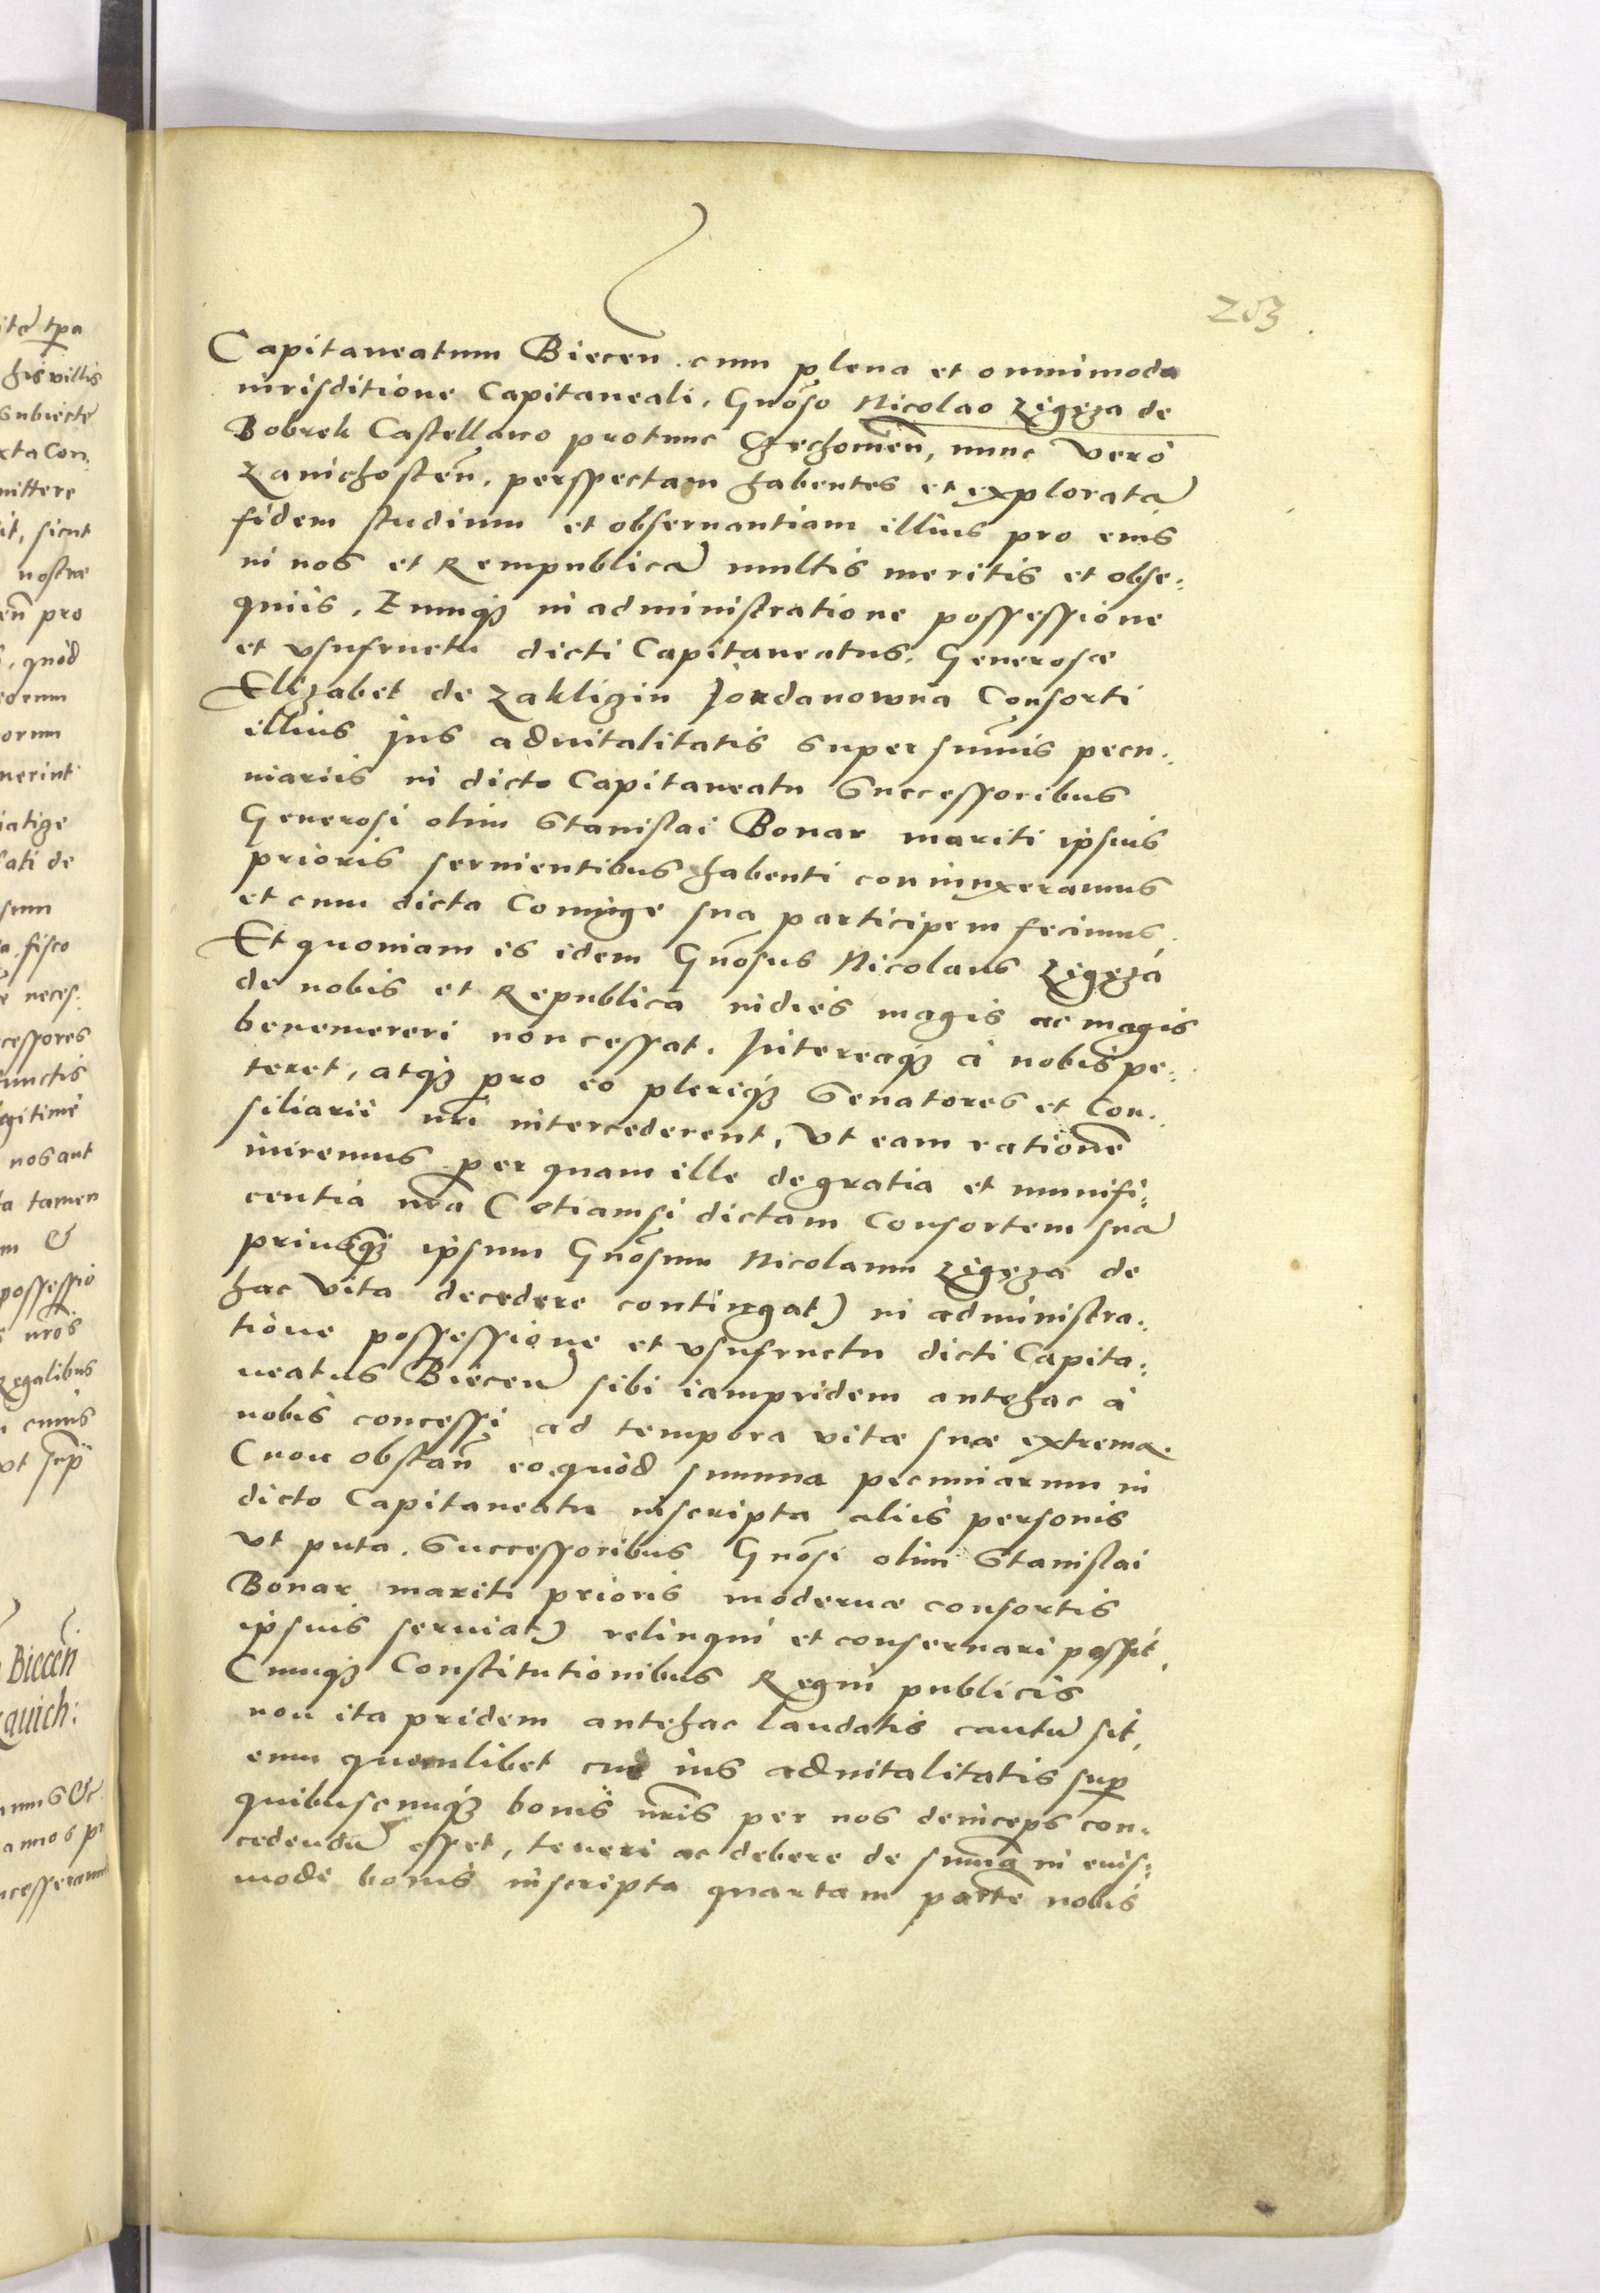 203
Capitaneatum Biecen. cum plena et omnimoda
iurisditione Capitaneali, Gnoso Nicolao Ligęza de
Bobrek Castellano protunc Czechouien, nunc vero
Zauichosten, perspectam habentes et exploratã
fidem studium et obseruantiam illius pro eius
in nos et Rempublicã multis meritis et obse:
quiis, Eumq3 in administratione possessione
et vsufructu dicti Capitaneatus, Generosæ
Elizabet de Zakliczin Jordanowna Consorti
illius jus aduitalitatis super sum̃is pecu:
niariis in dicto Capitaneatu Successoribus
Generosi olim Stanislai Bonar mariti ipsius
prioris seruientibus habenti coniunxeramus
et cum dicta Coniuge sua participem fecimus,
Et quoniam is idem Gnosus Nicolaus Ligęza
de nobis et Republica indies magis ac magis
benemereri non cessat. Intereaq3 à nobis pe:
teret, atq3 pro eo pleriq3 Senatores et Con:
siliarii nri intercederent, vt eam rationẽ
iniremus per quam ille de gratia et munifi:
centia nra (etiamsi dictam Consortem suã
priusq3 ipsum Gnosum Nicolaum Ligęza de
hac vita decedere contingat) in administra:
tione possessione et vsufructu dicti Capita:
neatus Biecen sibi iampridem antehac à
nobis concessi ad tempora vitæ suæ extrema.
(non obstañ eo, quod summa pecuniarum in
dicto Capitaneatu inscripta aliis personis
vt puta Successoribus Gnosi olim Stanislai
Bonar mariti prioris modernæ consortis
ipsius seruiat) relinqui et conseruari possit,
Cumq3 Constitutionibus Regni publicis
non ita pridem antehac laudatis cautũ sit,
eum quemlibet cui ius aduitalitatis sup
quibuscunq3 bonis nris per nos deinceps con:
cedendũ esset, teneri ac debere de sum̃a in eius:
modi bonis inscripta quartam partẽ nobis